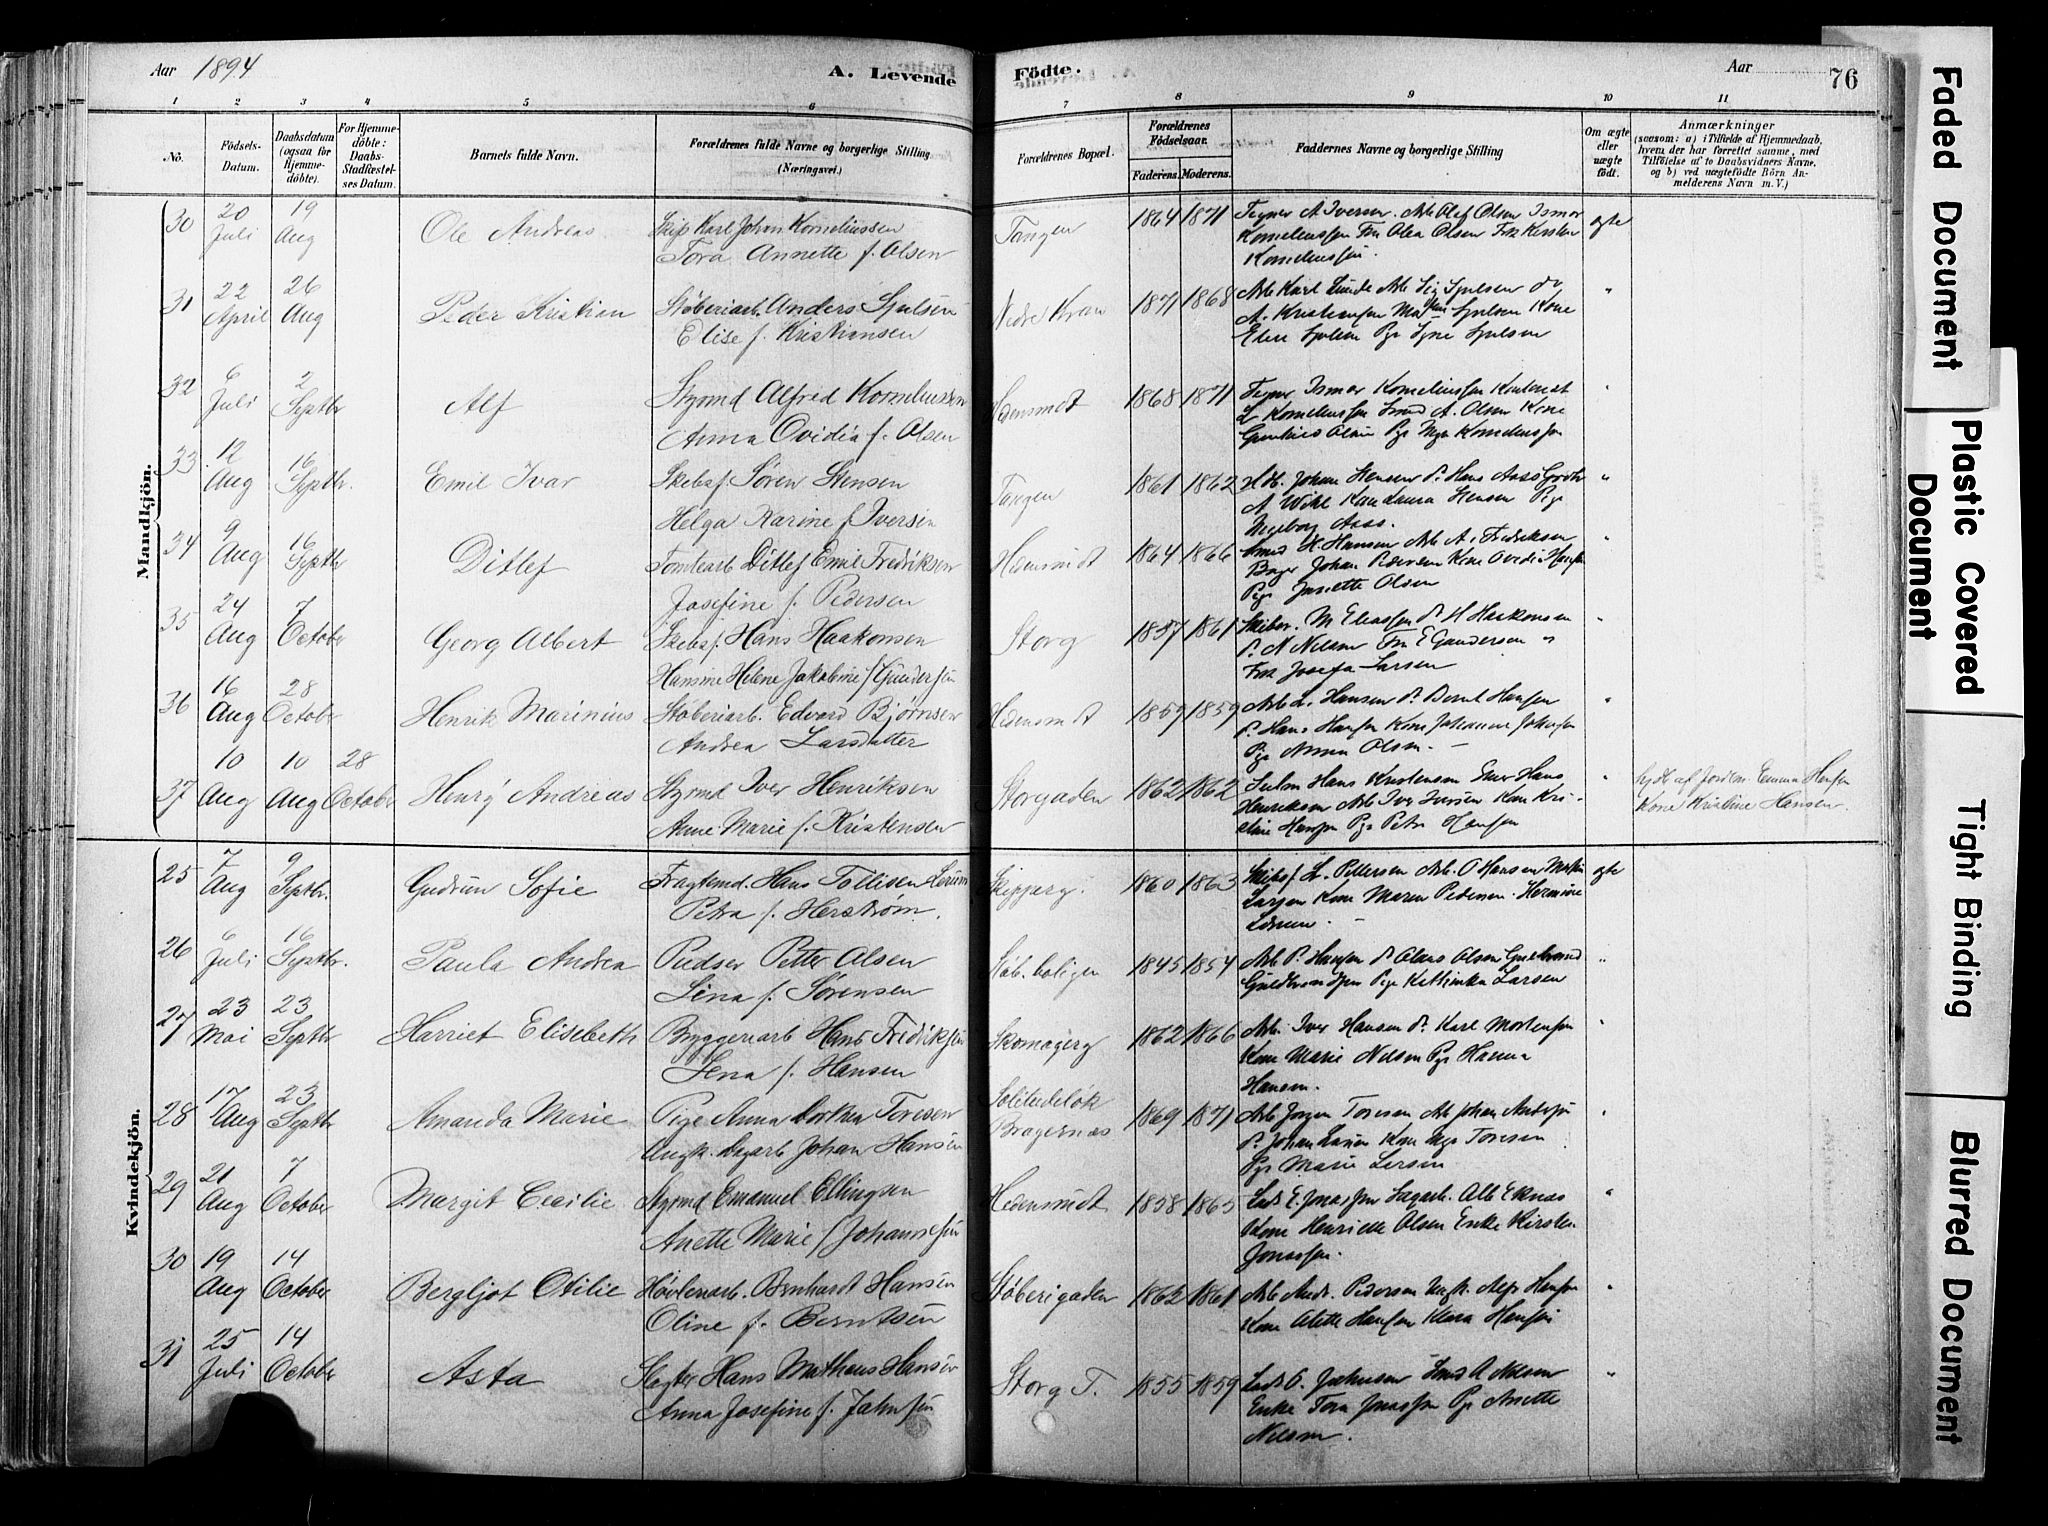 Aar 1894
A. Levende
Födte.
Aar
76
1 2 3 4 5 6 7 8 9 10 11
No.
Födsels-Datum.
Daabsdatum (ogsaa for Hjemme-döbte).
For Hjemme-döbte: Daabs-Stadfæstel-ses Datum.
Barnets fulde Navn.
Forældrenes fulde Navne og borgerlige Stilling (Næringsvei.)
Forældrenes Bopæl.
Forældrenes Födselsaar.
Faderens. Moderens.
Faddernes Navne og borgerlige Stilling
Om ægte eller uægte födt.
Anmærkninger
(saasom: a) i Tilfælde af Hjemmedaab, hvem der har forrettet samme, med Tilföielse af to Daabsvidners Navne, og b) ved uægtefödte Börn An-melderens Navn m. V.)
Mandkjön.
30 20 Juli 19 Aug Ole Andreas Skip Karl Johan Korneliussen
Tora Annette f. Olsen
Tangen 1864 1871 Tegner A Iversen Arb Olaf Olsen Ismar
Korneliussen Fru Olea Olsen Frk Kirsten
Korneliussen. ægte
31 22 April 26 Aug Peder Kristian Støberiarb. Anders Sjulsen
Elise f. Kristiansen
Nedre Kran 1871 1868 Arb Karl Lunde Arb Sig Sjulsen
A. Kristiansen Sjulsen Kone
Elise Sjulsen Sjulsen "
32 6 Juli 2 Septbr Alf Styrmd Alfred Korneliussen
Anna Ovidia f. Olsen
Hedensmdt 1868 1871 Tegner Ismar Korneliussen
L Korneliussen Smed A. Olsen Kone
Olsen Pge Korneliussen "
33 12 Aug 16 Septbr. Emil Ivar Skibsf Søren Stensen
Helga Karine f Iversen
Tangen 1861 1862 Johan Stensen Do Hans Aass
A Wike Laura Stensen Pge
Ingeborg Aass. "
34 9 Aug 16 Septbr Ditlef Tomtearb Ditlef Emil Fredriksen
Josefine f. Pedersen
Hedensmdt 1864 1866 Smed H. Hansen Arb A. Fredriksen
Johan Pedersen Kone Ovidia Hansen
Pge Janette Olsen "
35 24 Aug 7 October Georg Albert Skibsf. Hans Haakonsen
Hansine Helene Jakobine f Gundersen
Storg 1857 1861 Skibsr. M Eliassen Do H Haakonsen
Do N Nilsen Fru E Gundersen
Frk Josefa Larsen "
36 16 Aug 28 October Henrik Marinius Støberiarb. Edvard Bjørnsen
Andrea Larsdatter
Hedensmdt 1859 1859 Arb L. Hansen Do Bernt Hansen
Do Hans Hansen Kone Johanne Johnsen
Pge Anna Olsen. "
37 10 Aug 10 Aug 28 October Henry Andreas Styrmd Iver Henriksen
Anne Marie f. Kristensen
Storgaden 1862 1862 Hans Kristensen Hans
Henriksen Arb Iver Iversen Kone Kri-
stine Hansen Pge Petra Hansen "
Hjdb af Jordm. Emma Hansen
Kone Kristine Hansen.
Kvindekjön.
25 7 Aug 9 Septbr. Gudrun Sofie Fragtemd. Hans Tollisen Lerum
Petra f. Herstrøm.
Skipperg. 1860 1863 Skibsf L. Pettersen Arb. O Hansen
Larsen Kone Maren Pedersen. Hermine
ægte
26 6 Juli 16 Septbr. Paula Andrea Pudser Petter Olsen
Lina f. Sørensen
Støb. boligen 1845 1854 Arb P. Hansen Do Olaus Olsen Gulbrand
Pge Kathinka Larsen "
27 23 Mai 23 Septbr Harriet Elisebeth Byggeriarb Hans Fredriksen
Lena f. Hansen
Skomagerg 1862 1866 Arb. Iver Hansen Do Karl Mortensen
Kone Marie Nilsen Pge Hanna
Hansen. "
28 17 Aug 23 Septbr Amanda Marie Pige Anna Dorthea Toresen
Ungk. Dagarb Johan Hansen
Solitudeløk
Bragernæs 1869 1871 Arb Jørgen Toresen Arb Johan
Do Johan Larsen Kone Toresen
Pge Marie Larsen "
29 21 Aug 7 October Margit Cecilie Styrmd Emanuel Ellingsen
Anette Marie f Johannesen
Hedensmdt 1858 1865 Lods E. Jonassen Sagarb. Alb Eknæs
Kone Henriette Olsen Enke Kirsten
Jonassen. "
30 19 Aug 14 October Bergljot Otilie Høvleriarb. Bernhardt Hansen
Oline f. Berntsen
Støberigaden 1862 1861 Arb Andr. Pedersen Ungk. Alf Hansen
Kone Alette Hansen Klara Hansen "
31 25 Juli 14 October Asta Slagter Hans Mathæus Hansen
Anna Josefine f. Jahnsen
Storg T. 1855 1859 Lods O. Jahnsen Smed A Nilsen
Enke Tora Jonassen Pge Anette
Nilsen. "
Faded Document
Plastic Covered Document
Tight Binding
Blurred Document